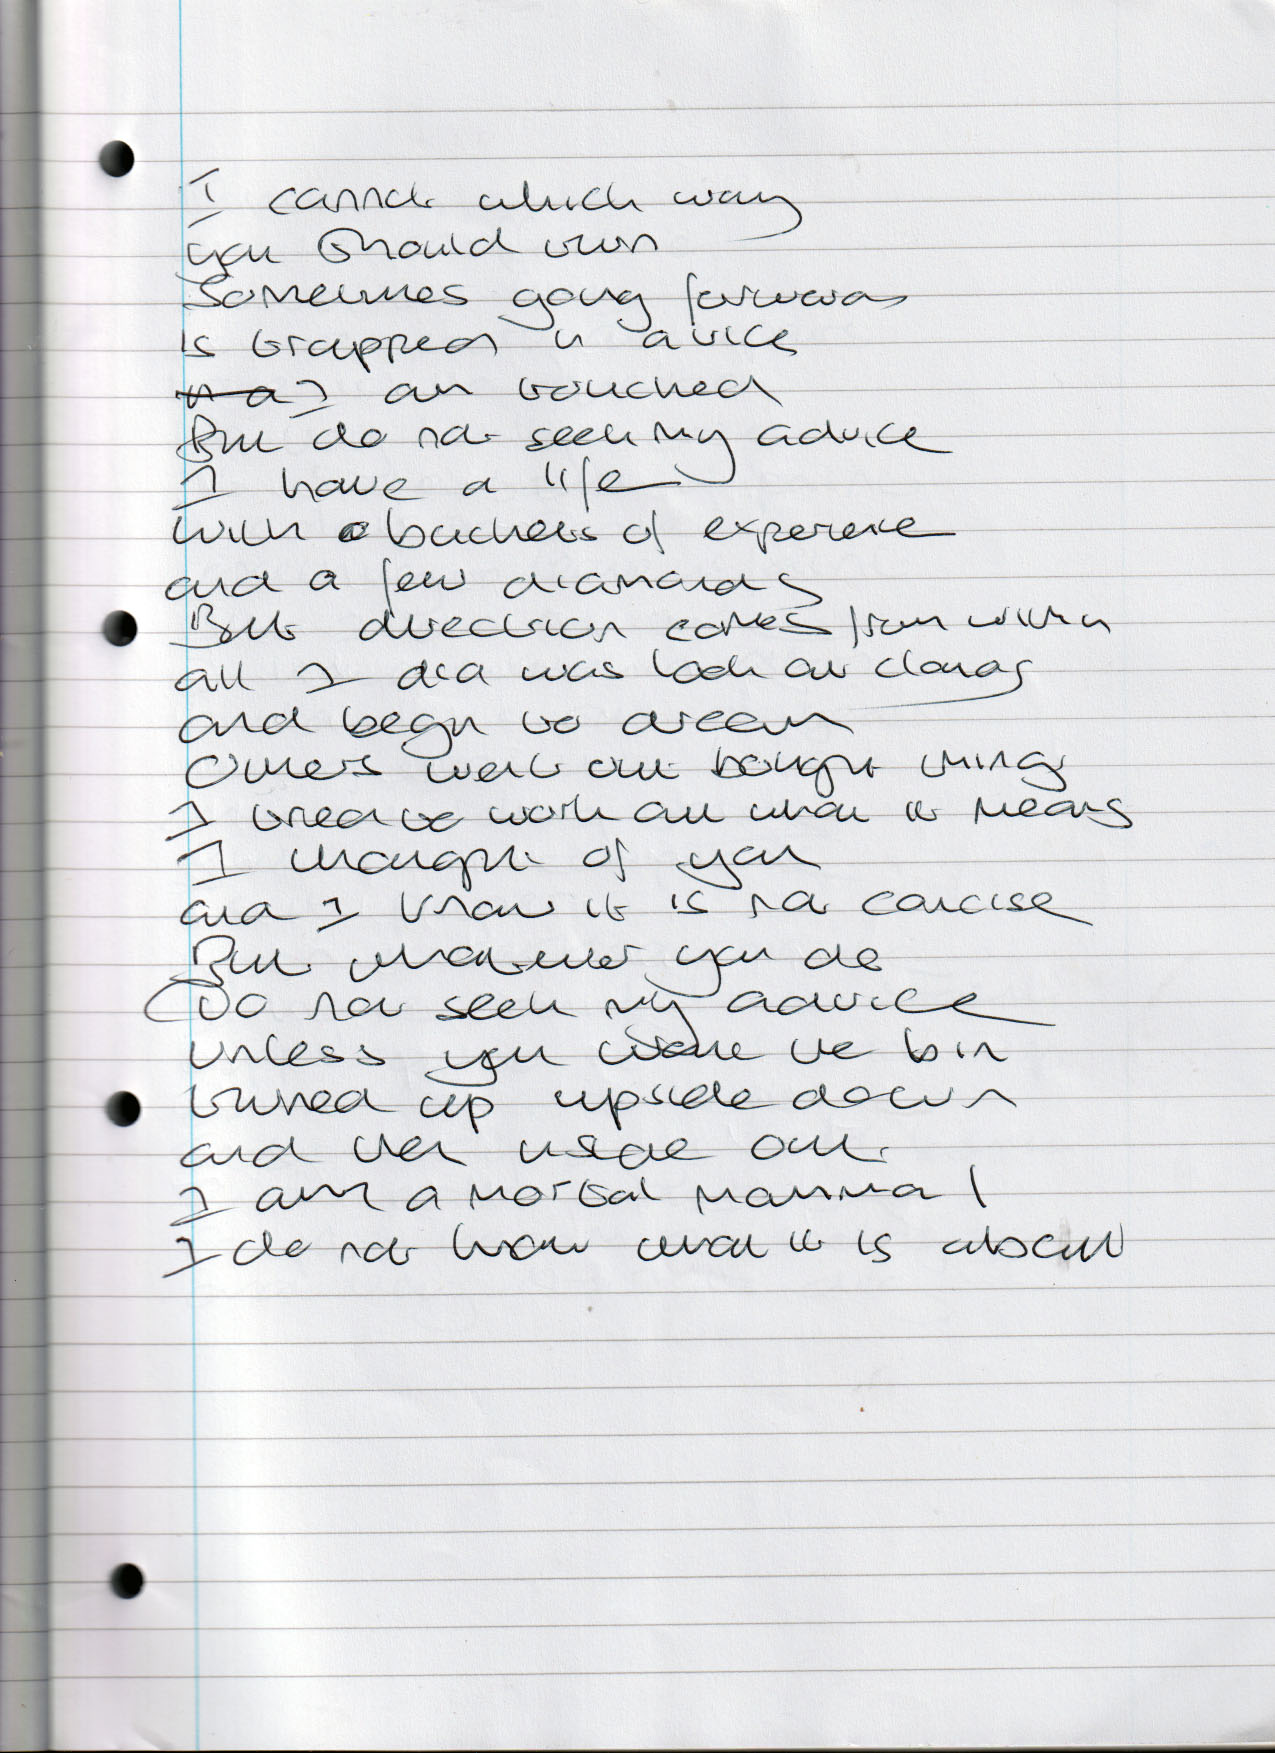 I cannot which way
you should turn
Sometimes going forward
is trapped in a vice
I am touched
But do not seek my advice
I have a life
with buckets of experience
and a few diamonds
But direction comes from within
all I did was look at clouds
and begin to dream
Others went out bought things
I tried to work out what it means
I thought of you
and I know it is not concise
But whatever you do
Do not seek my advice
unless you want to be
turned up upside down
and then inside out
I am a mortal mammal
I do not know what it is about